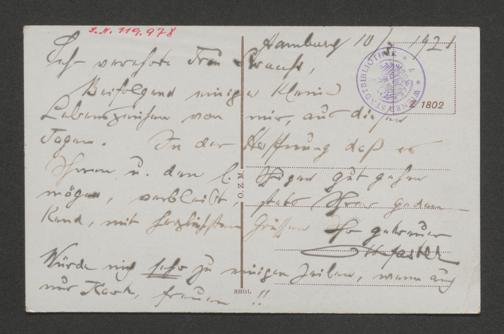 I.N. 119.978
Hamburg 10/7 1921
Sehr verehrte Frau Strauß,
Beifolgend einige kleine
Lebenszeichen von mir, aus diesen
Tagen. In der Hoffnung daß es
Ihnen u. den l. Ihrigen gut gehen
möge, verbleibt, stets Ihrer geden-
kend, mit herzlichsten Grüßen Ihr getreuer
Würde mich sehr zu einigen Zeilen, wenn auch
nur Karte, freuen !!
WIENER STADTBIBLIOTHEK
Z 1802
M.Z.O.